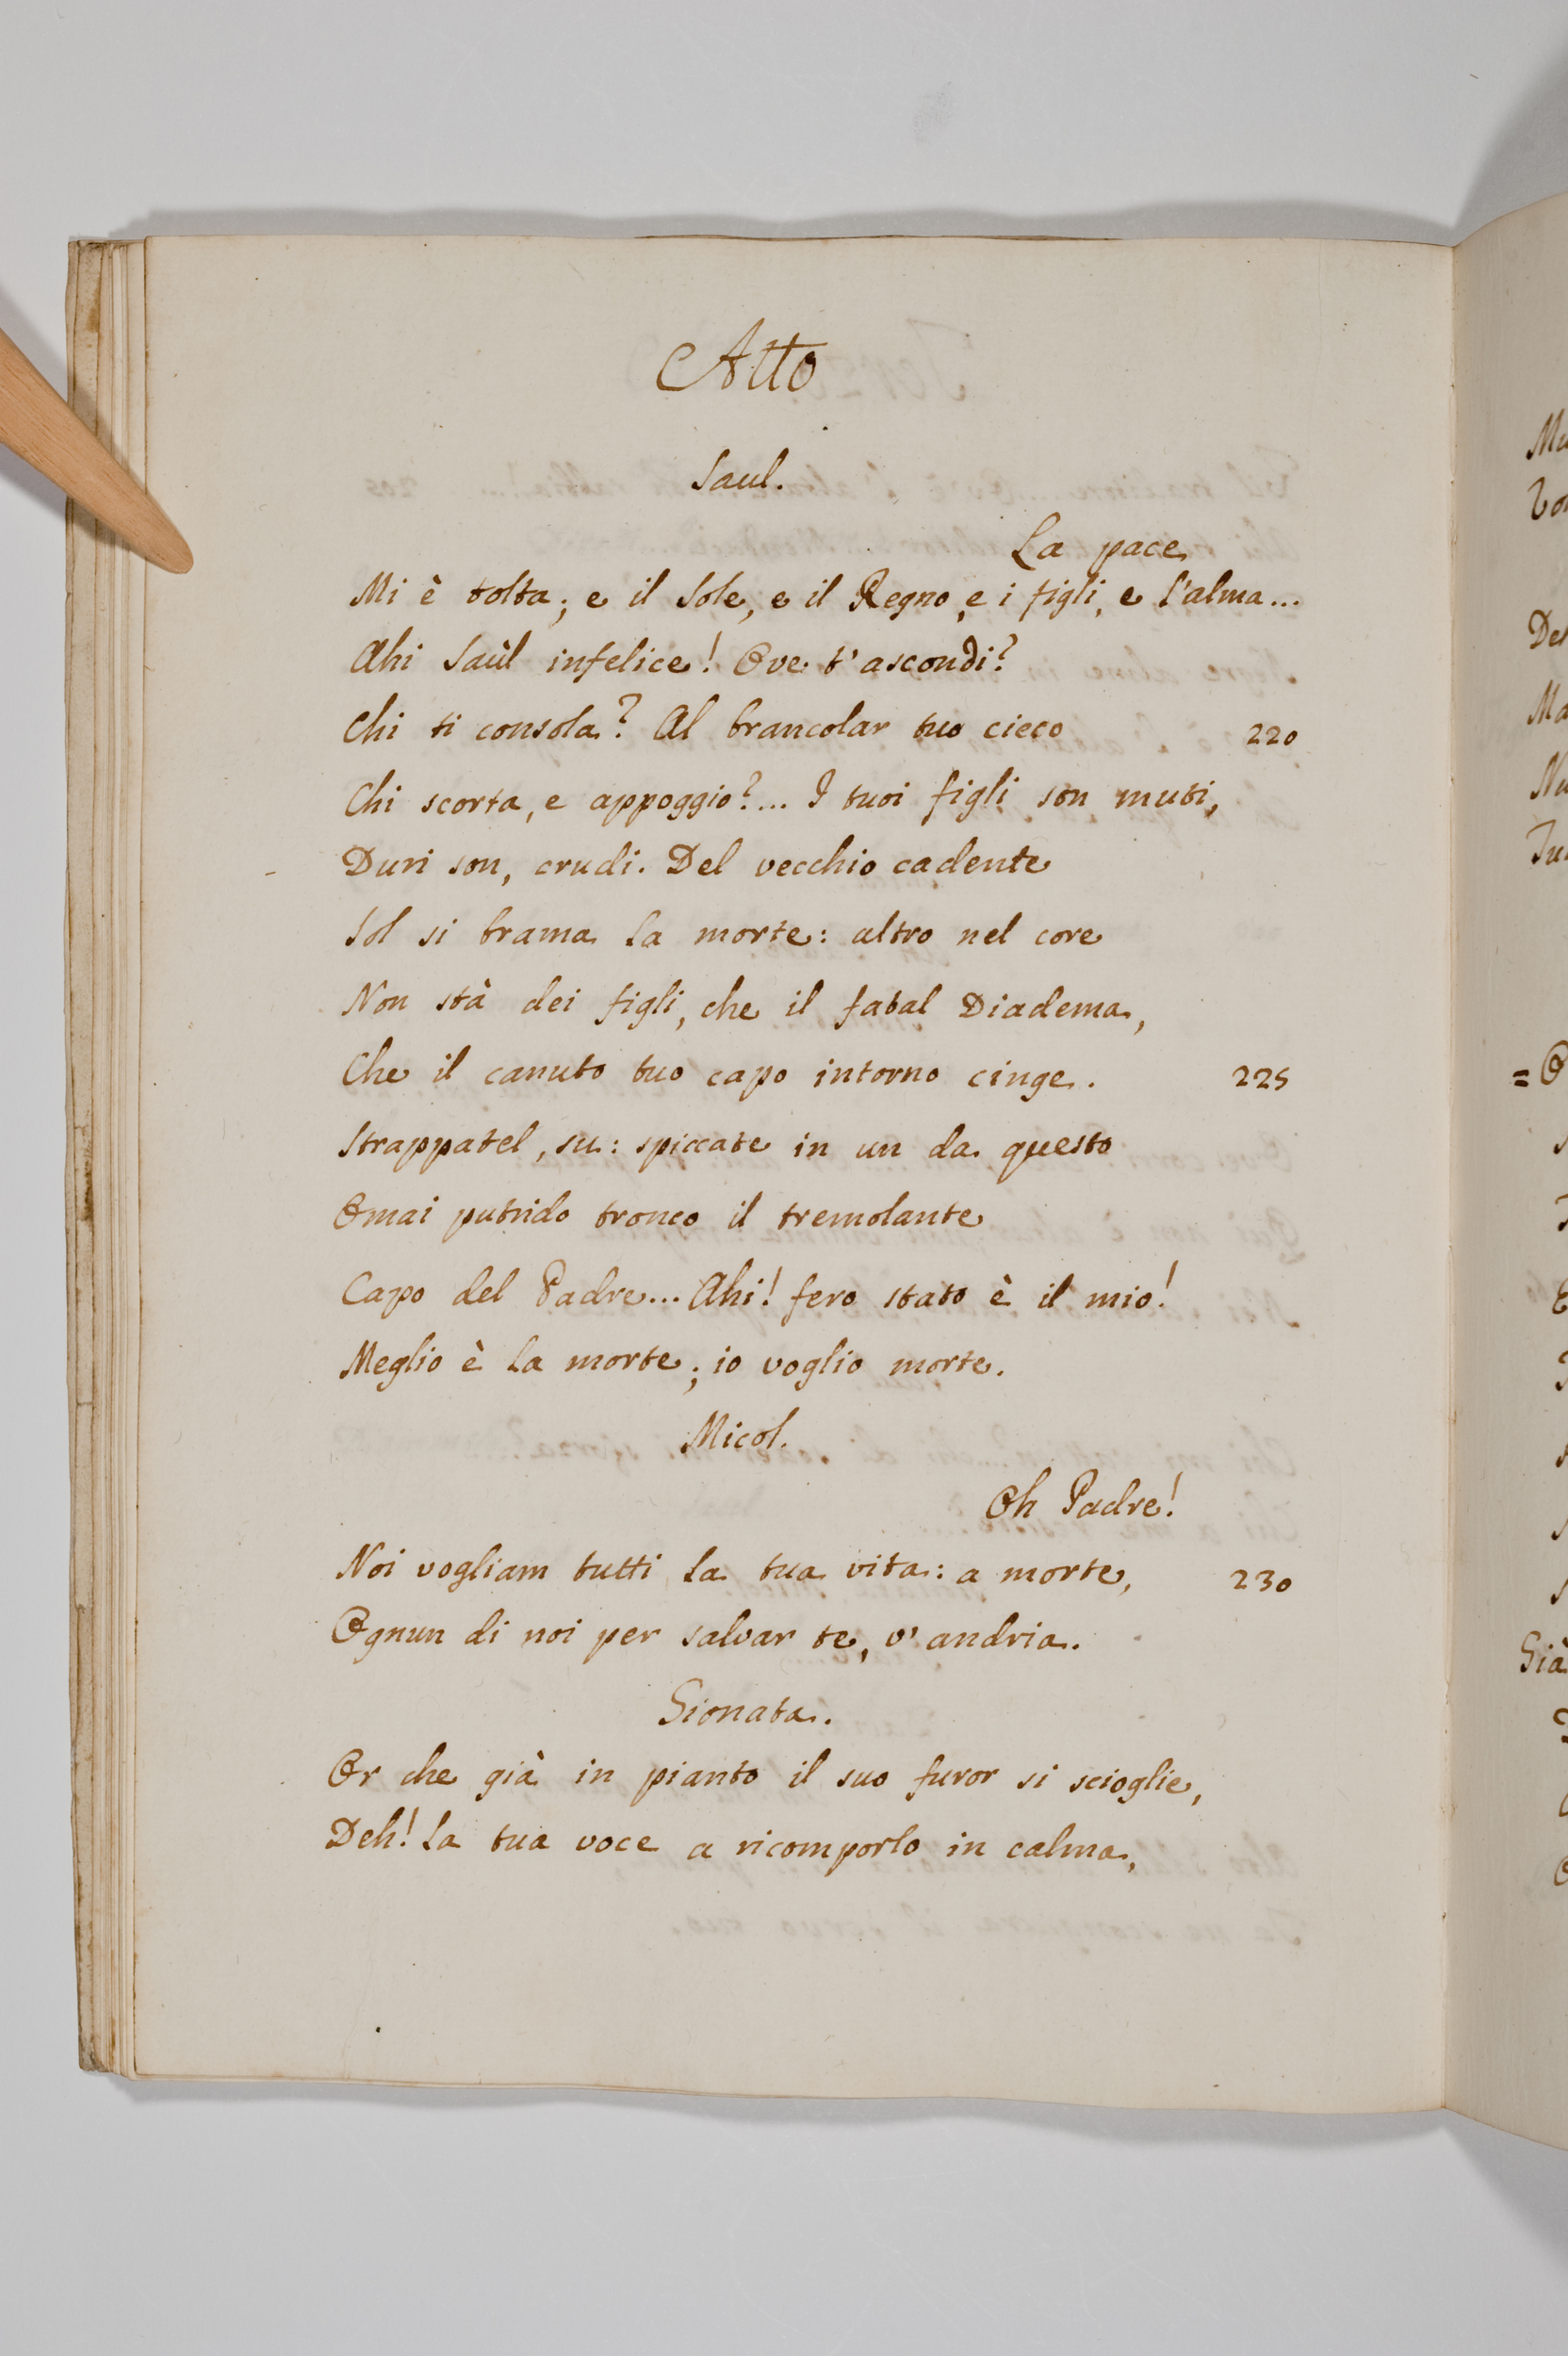 Atto
Saul.
La pace
Mi è tolta; e il Sole, e il Regno, e i figli, e l'alma...
Ahi Saùl infelice! Ove t'ascondi?
Chi ti consola? Al brancolar tuo cieco 220
Chi scorta, e appoggio?... I tuoi figli son muti,
Duri son, crudi. Del vecchio cadente
Sol si brama la morte: altro nel core
Non stà dei figli, che il fatal Diadema,
Che il canuto tuo capo intorno cinge. 225
Strappatel, su: spiccate in un da questo
Omai putrido tronco il tremolante
Capo del Padre... Ahi! fero stato è il mio!
Meglio è la morte; io voglio morte.
Micol.
Oh Padre!
Noi vogliam tutti la tua vita: a morte, 230
Ognun di noi per salvar te, v'andria.
Gionata.
Or che già in pianto il suo furor si scioglie,
Deh! la tua voce a ricomporlo in calma,
Mu
De
Ma
Nu
= O
Già